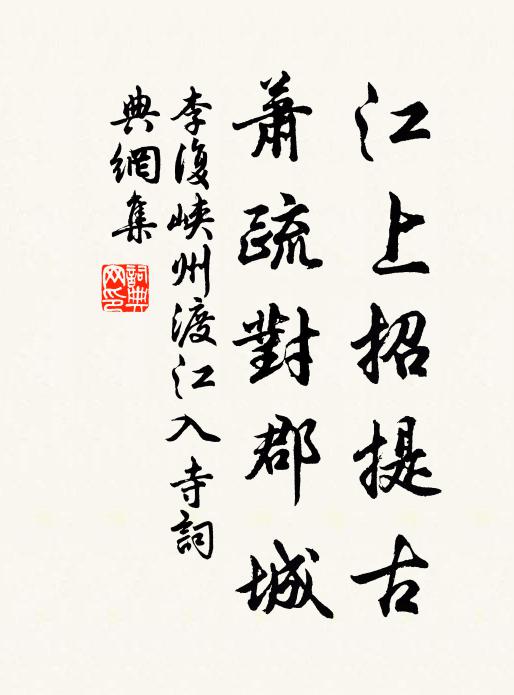 江上招提古
蕭疏對郡城
李復峽州渡江入寺詞
典網集
詞典
网印